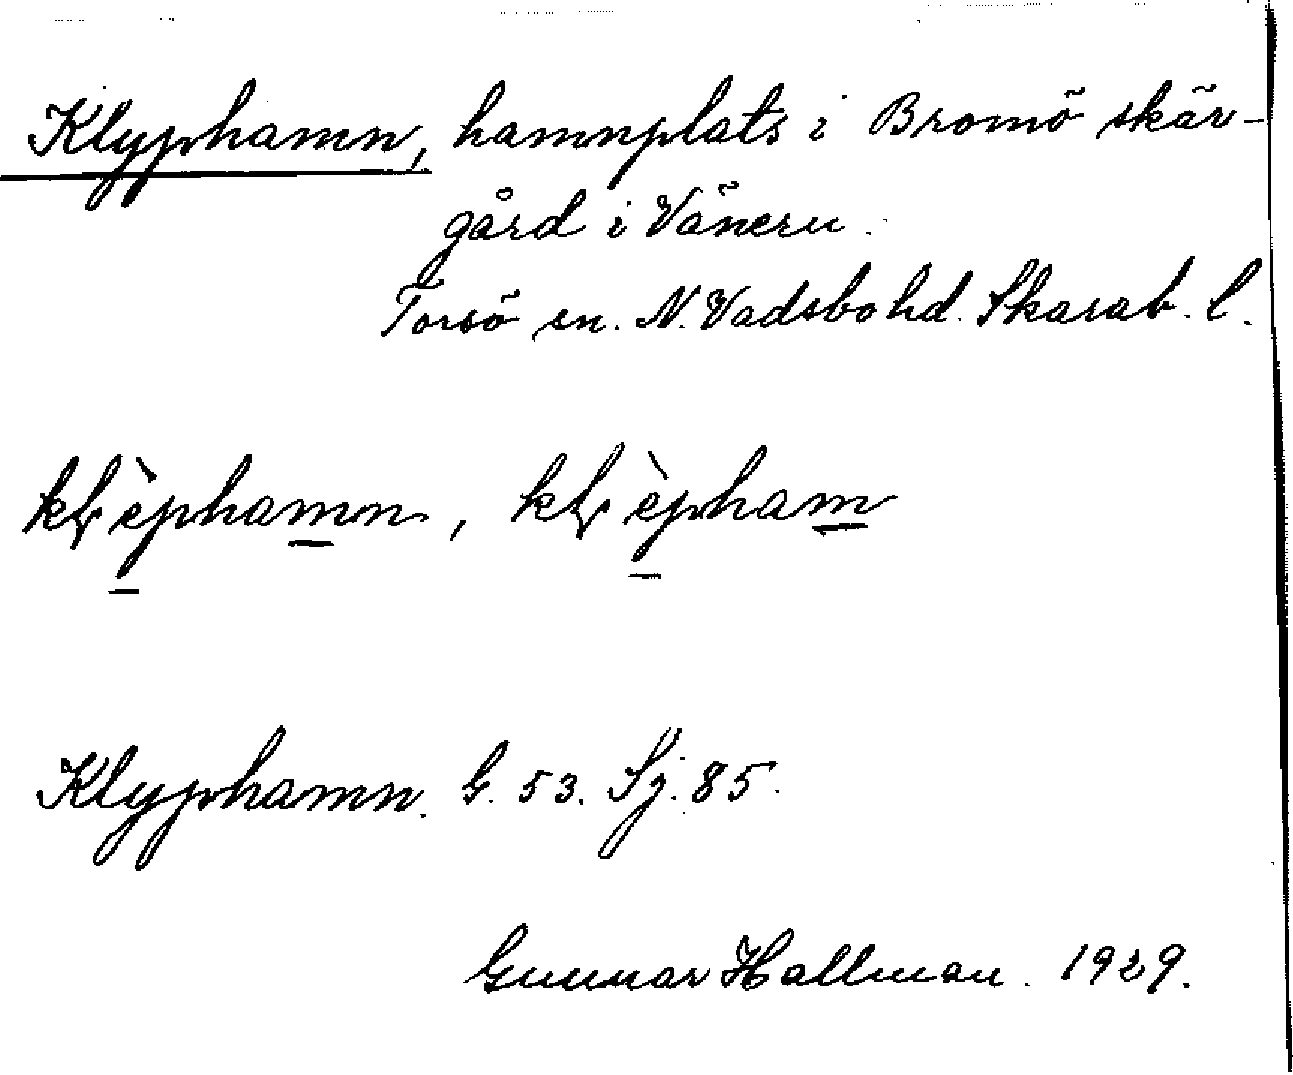 Klyphamn, hamnplats i Bromö skär-
gård i Vänern.
Torsö sn. N. Vadsbo hd. Skarab. l.
kl̀èphamn, kl̀èpham
Klyphamn. G. 53. Sj. 85.
Gunnar Hallman. 1929.